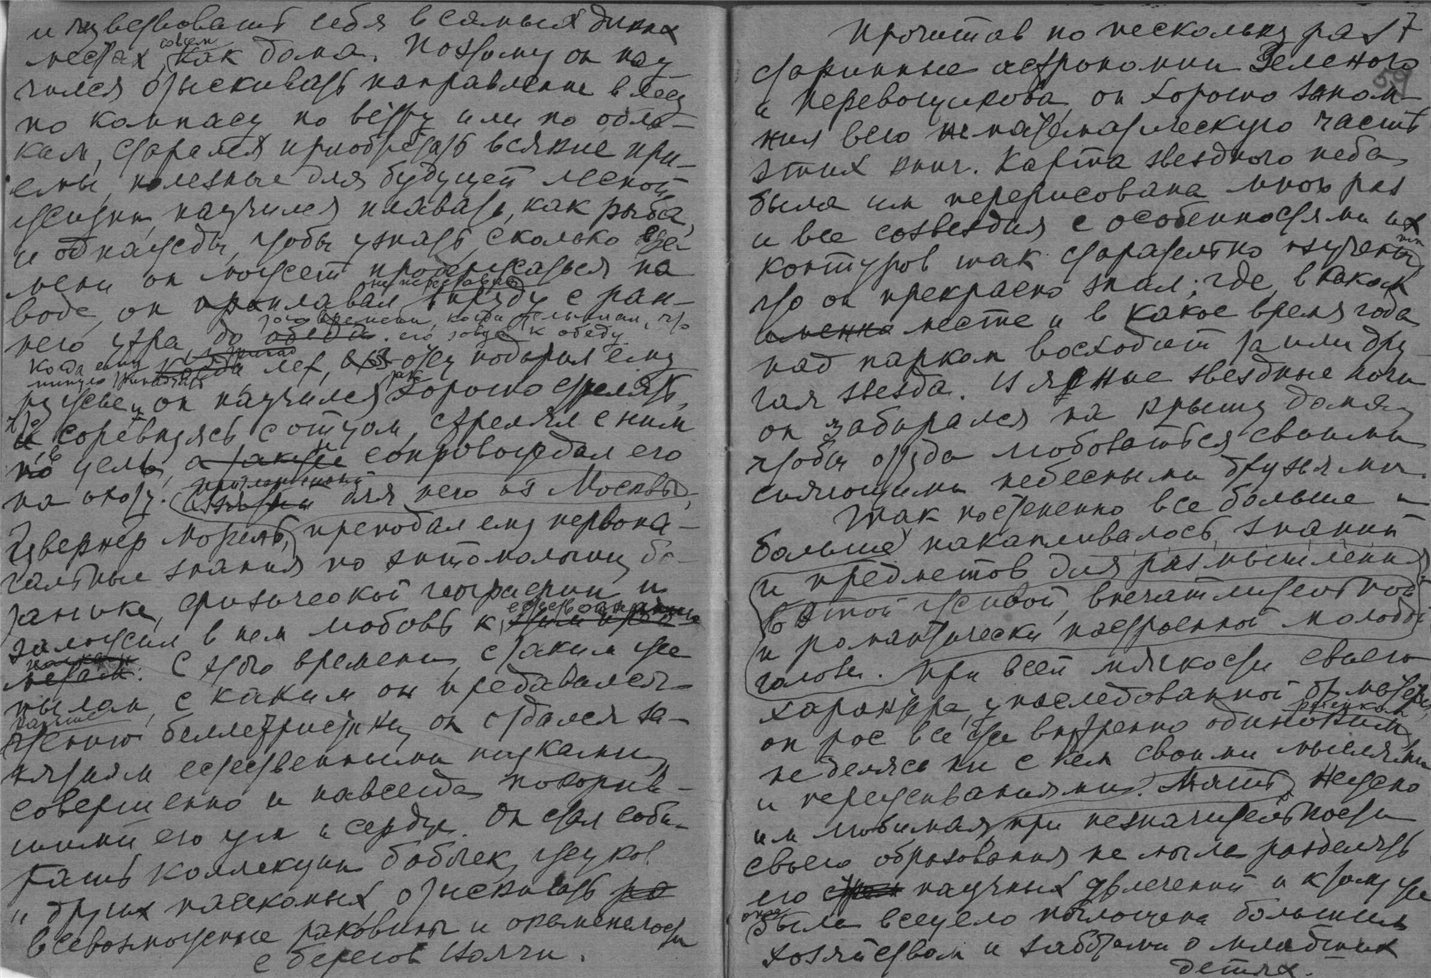 и чувствовать себя в самых диких
местах совсем как дома. Поэтому он нау
чился отыскивать направление в лесу
по компасу по ветру или по обла-
кам, старался приобретать всякие при-
емы, полезные для будущей лесной
жизни, научился плавать, как рыба,
и однажды, чтобы узнать сколько вре
мени он может продержаться на
воде, он проплавал в пруду с ран-
него утра до обеда. его зовут к обеду.
того времени, когда услышал, что
Когда ему лет, отец подарил ему
ружье, и он научился хорошо стрелять,
соревнуясь с отцом, стрелял с ним
в цель, а также сопровождал его
на охоту. для него из Москвы
Гувернер Морель, преподал ему первона-
чальные знания по энтомологии, бо-
танике, физической географии и
заложил в нем любовь к естественным
наукам. С этого времени с таким же
пылом, с каким он предавался
чтению беллетристики, он отдался за-
нятиям естественными науками,
совершенно и навсегда покорив-
шими его ум и сердце. Он стал соби-
рать коллекции бабочек, жуков
и других насекомых отыскивать
всевозможные раковины и окаменелости
с берегов Волги.
Прочитав по нескольку раз 7
старинные астрономии Зеленого 59
и Перевощикова, он хорошо запом-
нил всю нематематическую часть
этих книг. Карта звездного неба
была им перерисована много раз
и все созвездия с особенностями их
контуров так старательно изучены им
что он прекрасно знал: где, в каком
именно месте и в какое время года
над парком восходит та или дру-
гая звезда. И в ясные звездные ночи
он забирался на крышу дома,
чтобы оттуда любоваться своими
сияющими небесными друзьями.
Так постепенно все больше и
больше накапливалось знаний
и предметов для размышления
в этой живой, впечатлительной
и романтически настроенной молодой
голове. При всей мягкости своего
характера, унаследованной от матери,
он рос все же внутренно одиноким,
не делясь ни с кем своими мыслями
и переживаниями. Мать, нежно
им любимая, при незначительности
своего образования не могла разделять
его научных увлечений и к тому же
она была всецело поглощена большим
хозяйством и заботами о младших
детях.